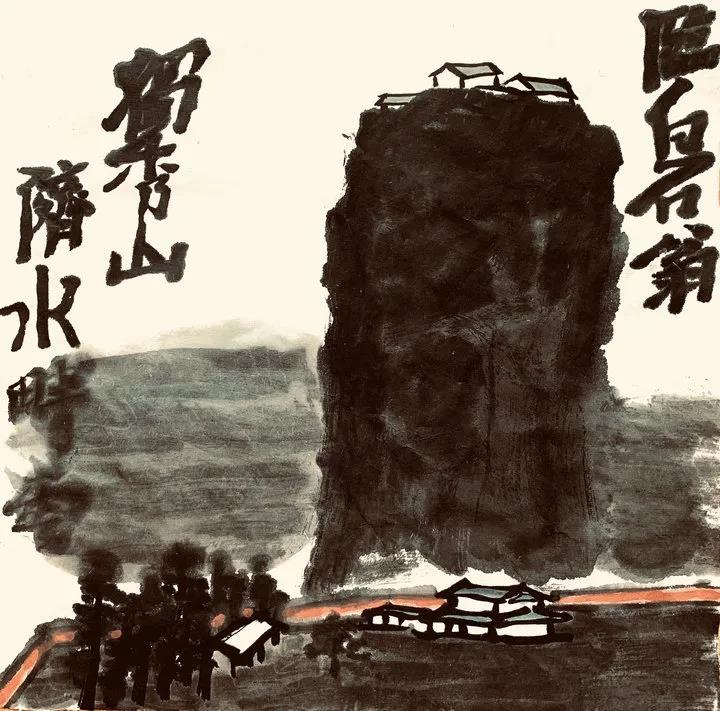 臨白石翁
獨秀山
濟水畔